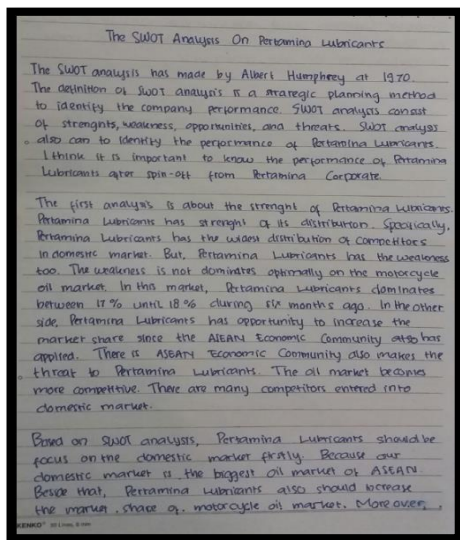 The SWOT Analysis On Pertamina Lubricants
The SWOT analysis has made by Albert Humphrey at 1970.
The definition of SWOT analysis is a strategic planning method
to identify the company performance. SWOT analysis consist
of strenghts, weakness, opportunities, and threats. SWOT analysis
also can to identify the performance of Pertamina Lubricants.
I think it is important to know the performance of Pertamina
Lubricants after spin-off from Pertamina Corporate.
The first analysis is about the strenght of Pertamina Lubricants.
Pertamina Lubricants has strenght of its distribution. Specifically,
Pertamina Lubricants has the widest distribution of competitors
in domestic market. But, Pertamina Lubricants has the weakness
too. The weakness is not dominates optimally on the motorcycle
oil market. In this market, Pertamina Lubricants dominates
between 17% until 18% during six months ago. In the other
side, Pertamina Lubricants has opportunity to increase the
market share since the ASEAN Economic Community has
applied. There is ASEAN Economic Community also makes the
threat to Pertamina Lubricants. The oil market becomes
more competitive. There are many competitors entered into
domestic market.
Based on SWOT analysis, Pertamina Lubricants should be
focus on the domestic market firstly. Because our
domestic market is the biggest oil market of ASEAN.
Beside that, Pertamina Lubricants also should increase
the market share of motorcycle oil market. Moreover,
KENKO